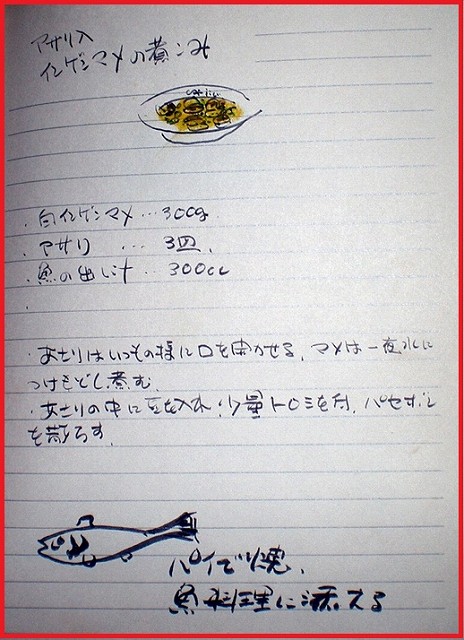 アサリ入
インゲンマメの煮こみ
・白インゲンマメ…300g
・アサリ …3皿、
・魚の出し汁…300cc
・
・あさりはいつもの様に口を開かせる、マメは一夜水に
つけもどし煮む、
・あさりの中に豆を入れ、少量トロミを付、パセ
を散らす、
パイで焼、
魚料理に添える